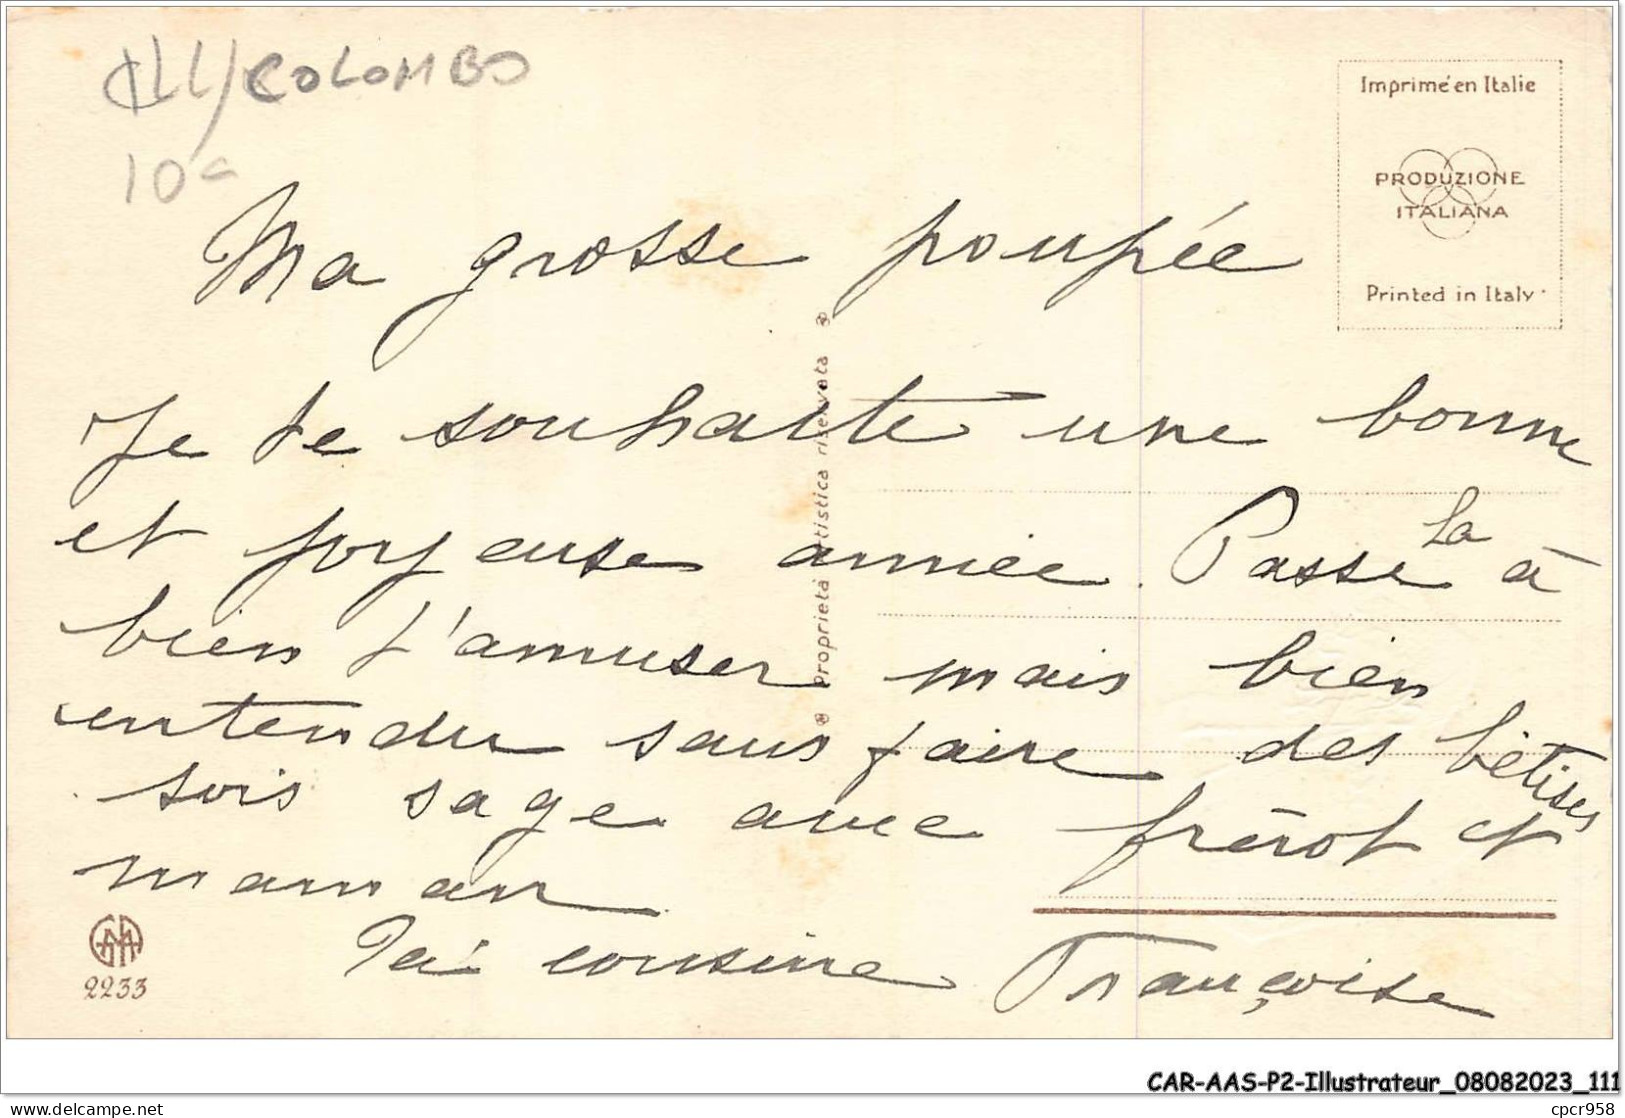 ILL/COLOMBO
10
Imprimé en Italie
PRODUZIONE
ITALIANA
Printed in Italy
Ma grosse poupée
Je te souhaite une bonne
et joyeuse année. Passe la à
bien t'amuser mais bien
entendu sans faire des bêtises
sois sage avec frérot et
maman
Ta cousine Françoise
Proprietà artistica riservata
2233
CAR-AAS-P2-Illustrateur_08082023_111
delcampe.net
cpcr958